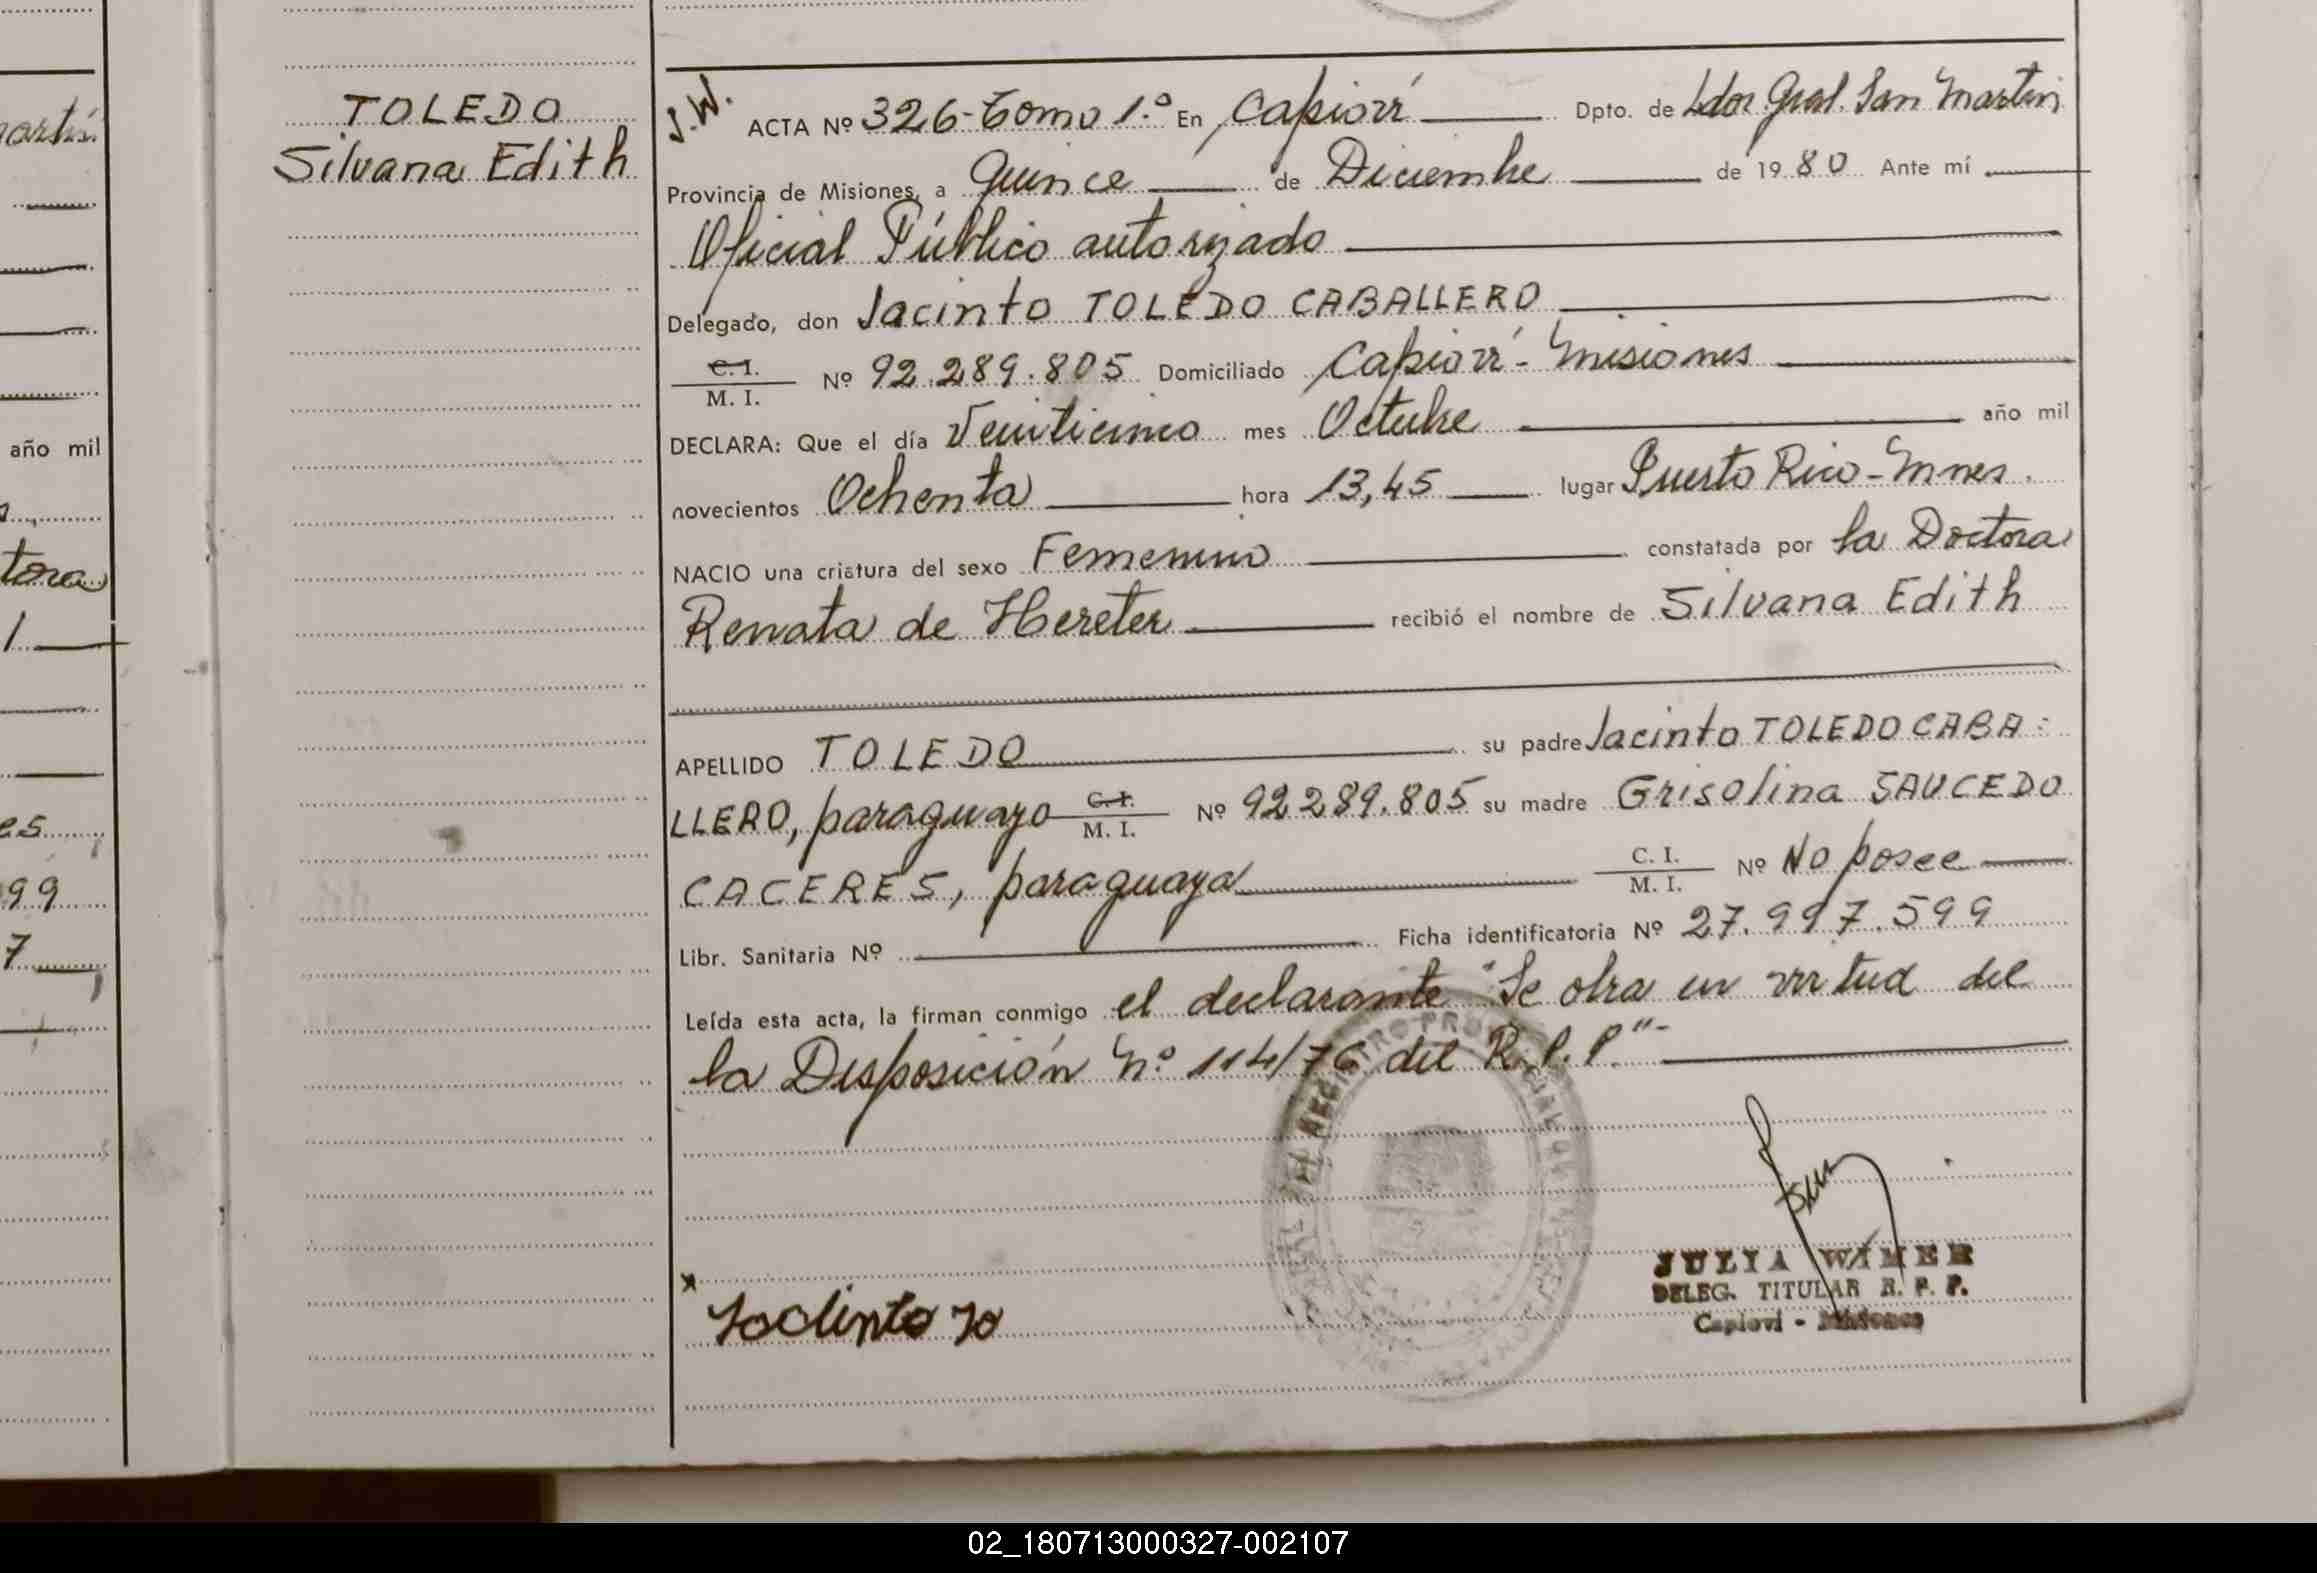 artín
año mil
tora
1
es
99
7
TOLEDO
Silvana Edith
J.W.
ACTA Nº 326-Tomo 1.º En Capioví Dpto. de Ldor Gral. San Martín
Provincia de Misiones, a Quince de Diciembre de 1980 Ante mí
Oficial Público autorizado
Delegado, don Jacinto TOLEDO CABALLERO
C.I.
M.I. Nº 92.289.805 Domiciliado Capioví - Misiones
DECLARA: Que el día Veinticinco mes Octubre año mil
novecientos Ochenta hora 13,45 lugar Puerto Rico - Mnes.
NACIO una criatura del sexo Femenino constatada por la Doctora
Renata de Hereter recibió el nombre de Silvana Edith
APELLIDO TOLEDO su padre Jacinto TOLEDO CABA=
LLERO, paraguayo C.I. M.I. Nº 92.289.805 su madre Grisolina SAUCEDO
CACERES, paraguaya C.I. M.I. Nº No posee
Libr. Sanitaria Nº Ficha identificatoria Nº 27.997.599
Leída esta acta, la firman conmigo el declarante "Se obra en virtud del
la Disposición Nº 114/76 del R.P.P"-
x
JULIA WIMER
DELEG. TITULAR R. P. P.
Capioví - Misiones
02_180713000327-002107